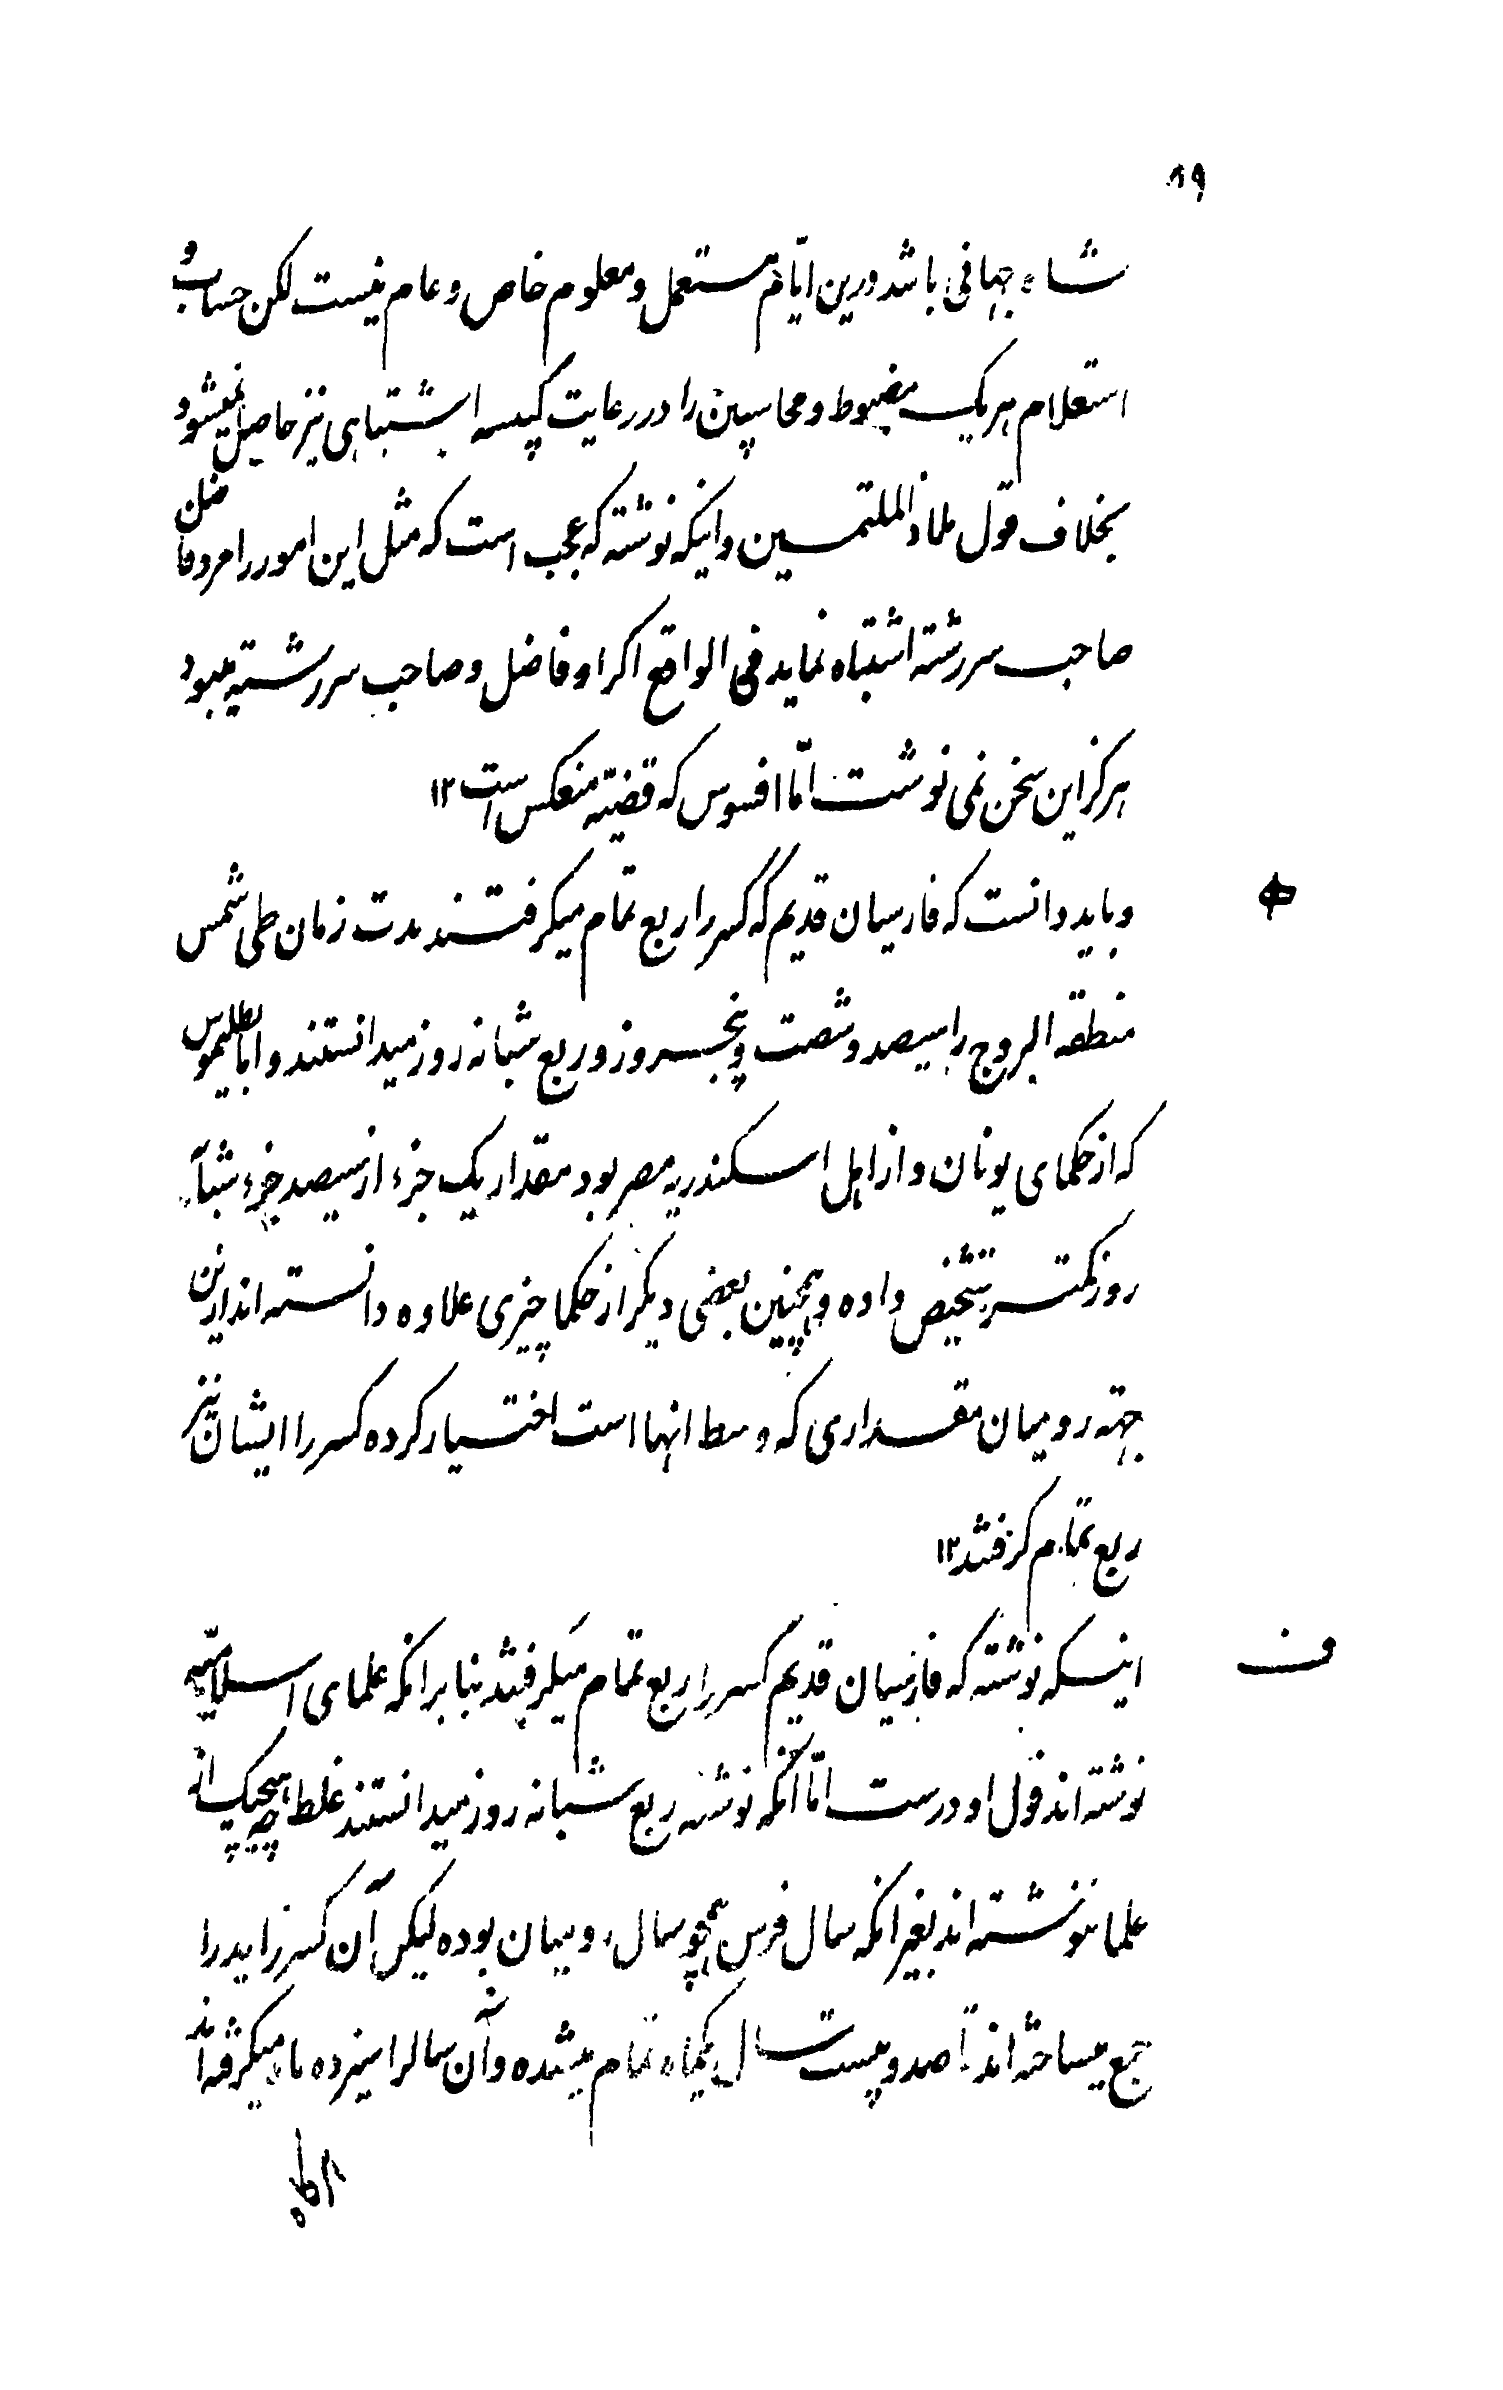 ۸۹
شاه جهانی باشد درین ایّام مستعمل و معلوم خاص و عام نیست لکن حساب و
استعلام هر یک مضبوط و محاسبین را در رعایت کبیسه اشتباهی نیز حاصل نمیشود
بخلاف قول ملاذ الملتمسین و اینکه نوشته که عجب است که مثل این امور را مرد فاضل
صاحب سررشته اشتباه نماید فی الواقع اکر او فاضل و صاحب سررشته میبود
هرکز این سخن نمی نوشت امّا افسوس که قضیّه منعکس است ۱۲
و باید دانست که فارسیان قدیم که کسر را ربع تمام میکرفتند مدت زمان طی شمس
منطقه البروج را سیصد و شصت و پنجروز و ربع شبانه روز میدانستند و اما بطلیموس
که از حکمای یونان و از اهل اسکندریه مصر بود مقدار یک جزء از سیصد جزء شبانه
روز کمتر تشخیص داده و همچنین بعضی دیکر از حکما چیزی علاوه دانسته اند ازین
جهته رومیان مقداری که وسط انها است اختیار کرده کسر را ایشان نیز
ربع تمام کرفتند ۱۲
ف
اینکه نوشته که فارسیان قدیم کسر را ربع تمام میکرفتند بنا بر انکه علمای اسلامیّه
نوشته اند قول او درست امّا انکه نوشته ربع شبانه روز میدانستند غلط چه هیچیک از
علما ننوشته اند بغیر انکه سال فرس همچو سال رومیان بوده لیکن آن کسر زاید را
جمع میساخته اند تا صد و بیست سال یکماه تمام میشده و آن سال را سیزده ماه میکرفته اند